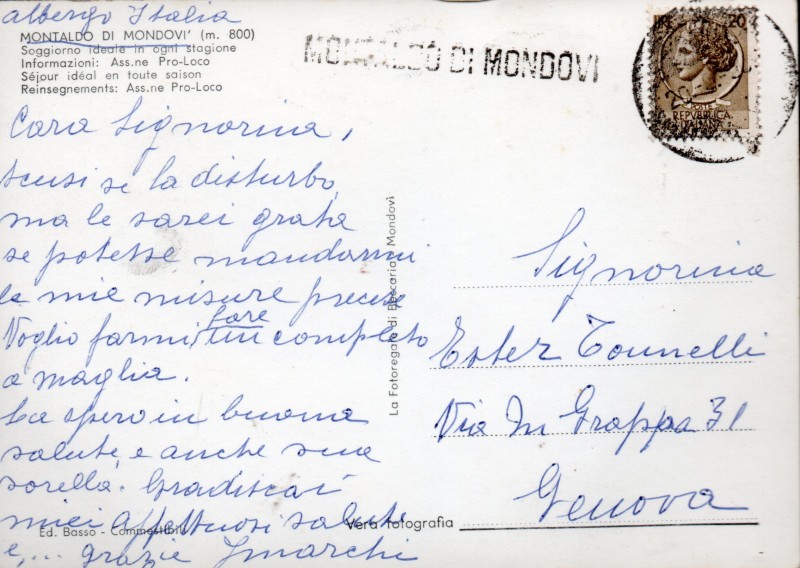 albergo Italia
MONTALDO DI MONDOVI' (m. 800)
Soggiorno ideale in ogni stagione
Informazioni: Ass.ne Pro-Loco
Séjour idéal en toute saison
Reinsegnements: Ass.ne Pro-Loco
MONTALDO DI MONDOVI
20
POSTE
REPVBBLICA
ITALIANA
Cara Signorina,
scusi se la disturbo,
ma le sarei grata
se potesse mandarmi
le mie misure precise
Voglio farmi fare un completo
a maglia.
La spero in buona
salute, e anche sua
sorella. Gradisca i
miei affettuosi saluti
e,... grazie
La Fotoregale di Beccaria - Mondovì
Signorina
Ester Tounelli
Via M Grappa 31
Genova
Ed. Basso - Commestibili
Vera fotografia